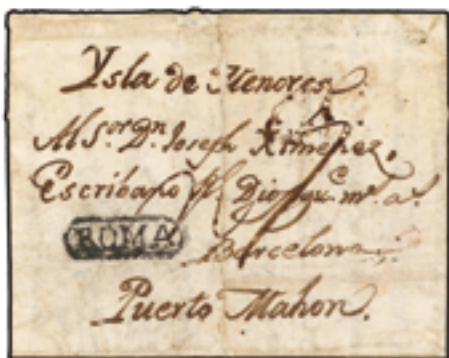 Ysla de Menorca
Al S.or Dn. Joseph Ximenez,
Escribano
ROMA
Barcelona
Puerto Mahon.